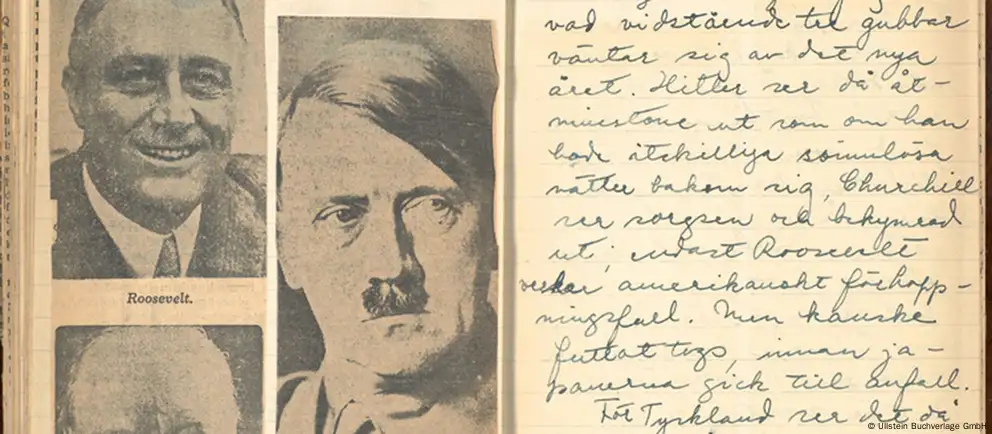 Roosevelt.
vad vidstående tre gubbar
väntar sig av det nya
året. Hitler ser då åt-
minstone ut som om han
hade åtskilliga sömnlösa
nätter bakom sig, Churchill
ser sorgsen och bekymrad
ut, endast Roosevelt
verkar amerikanskt förhopp-
ningsfull. Men kanske
togs, innan ja-
panerna gick till anfall.
För Tyskland ser det då
© Ullstein Buchverlage GmbH